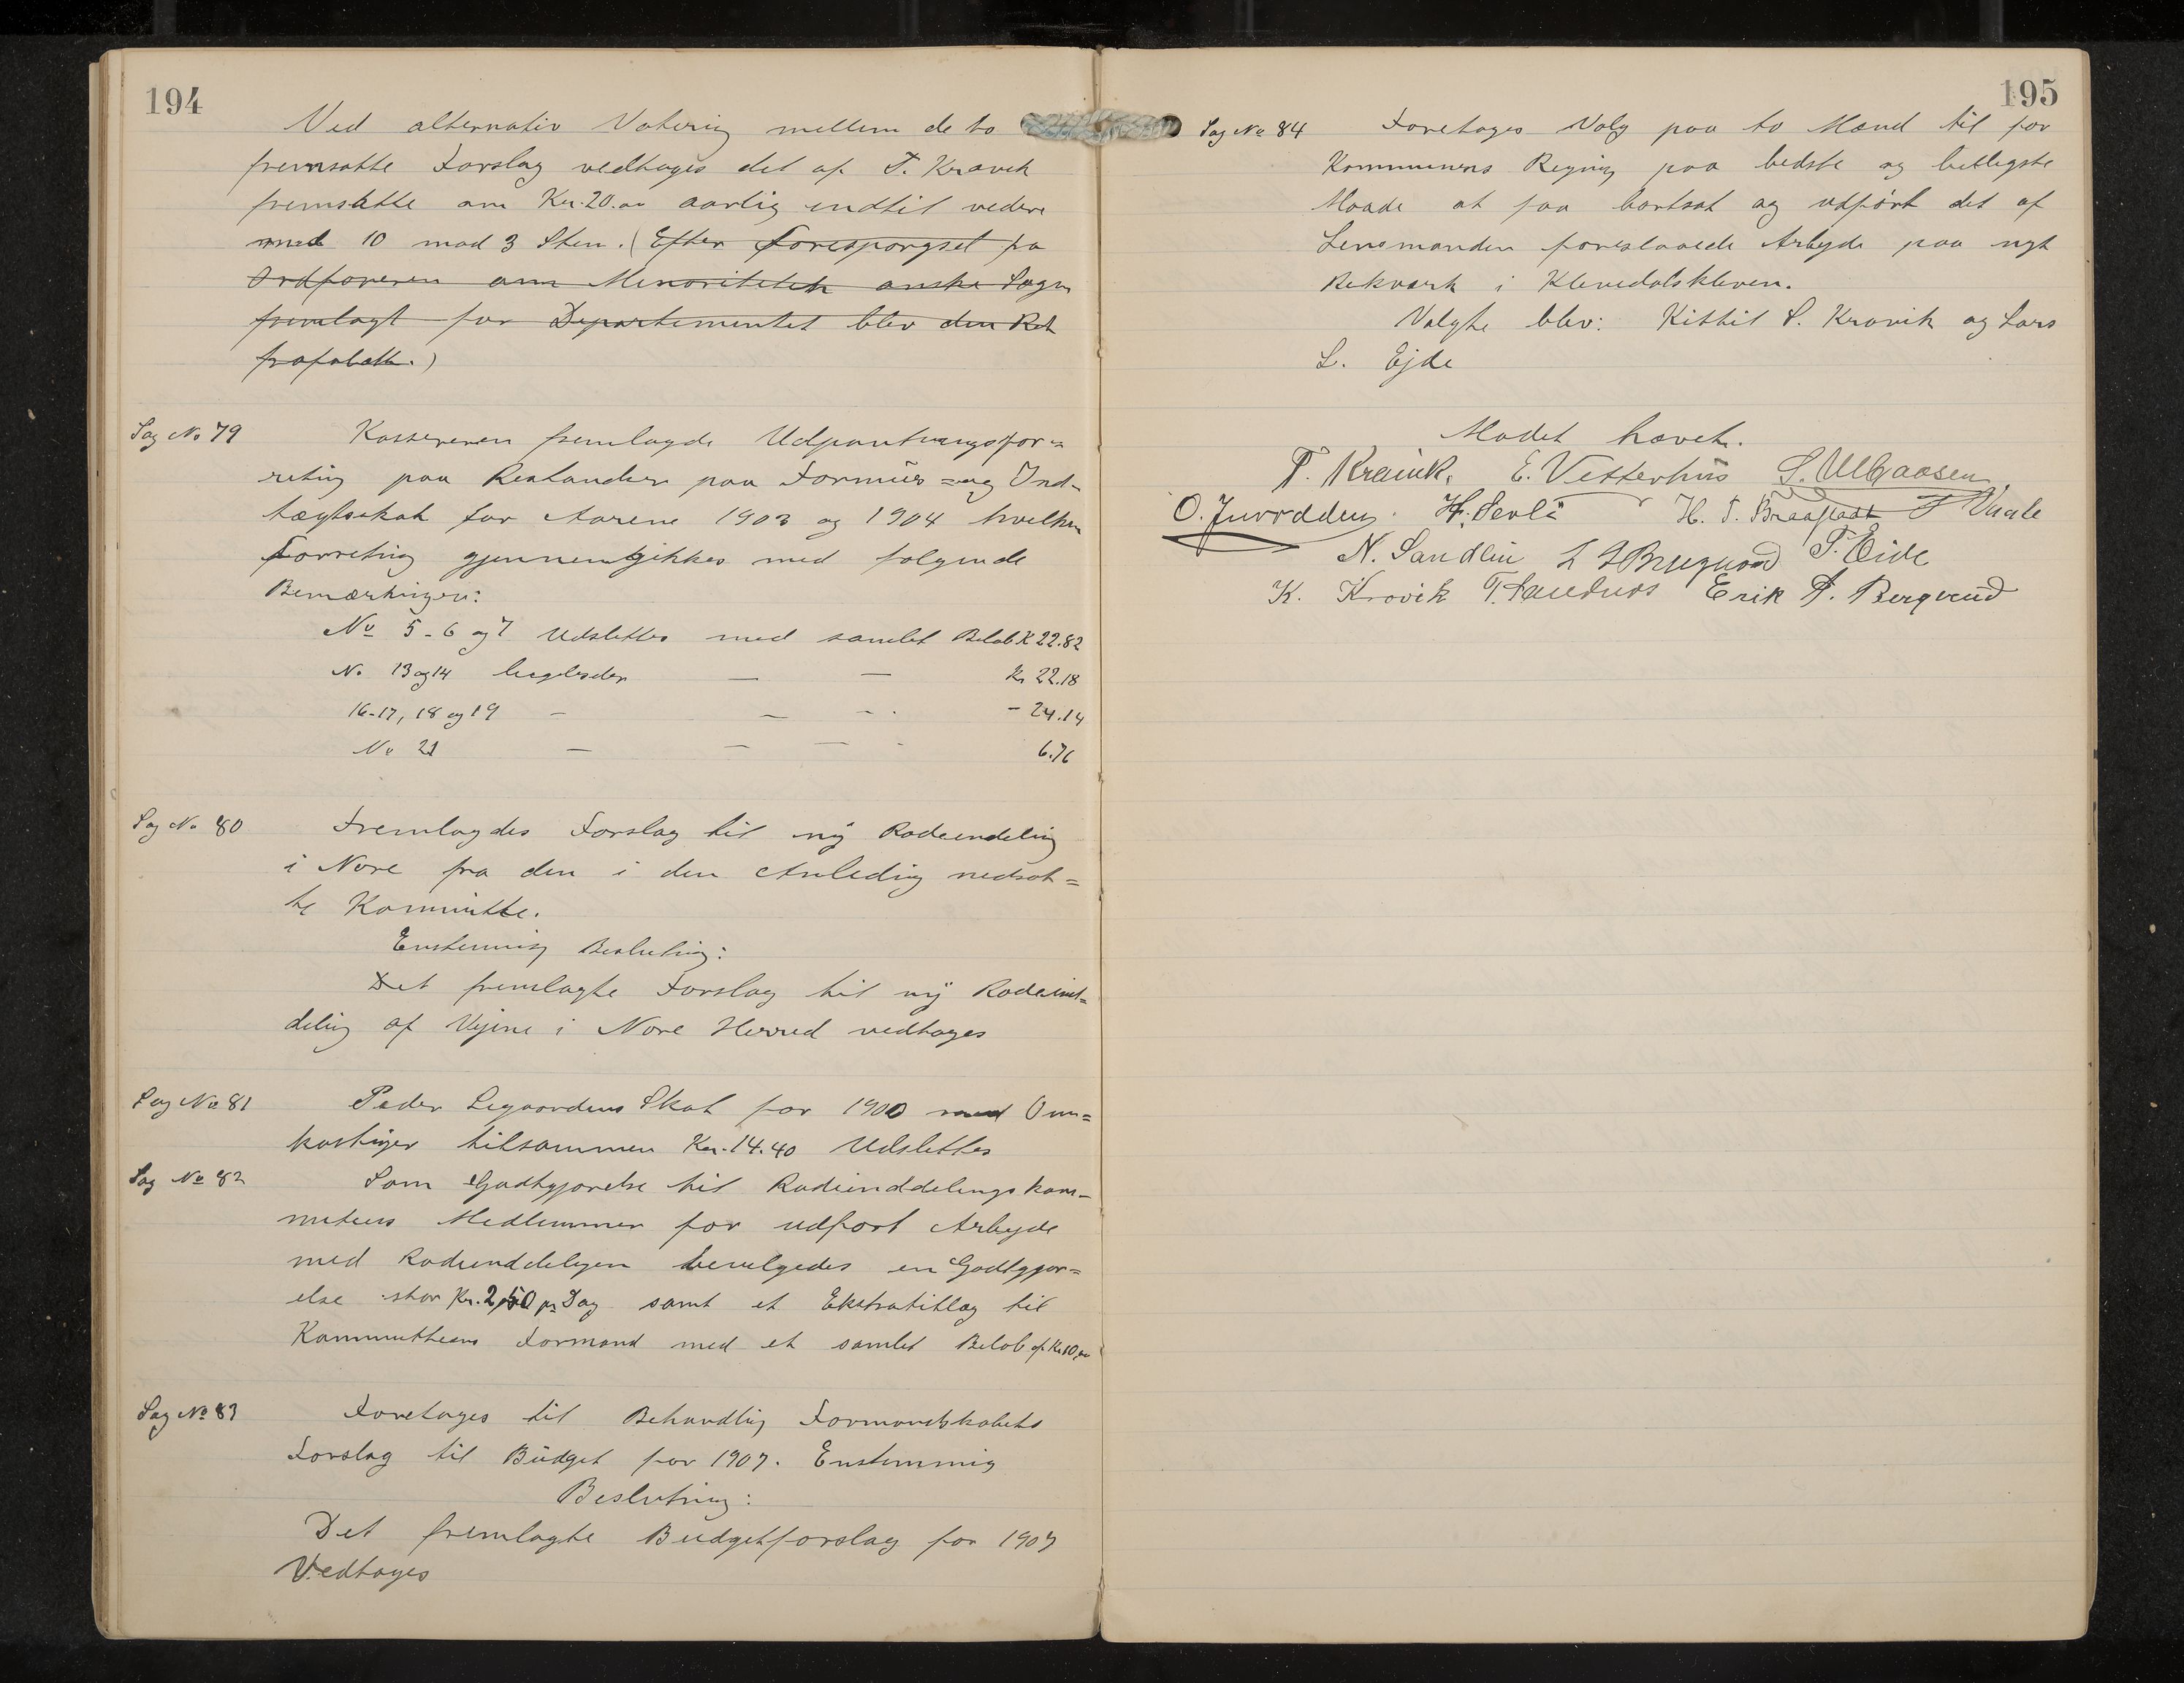 194
Ved alternativ Votering mellem de to
fremsatte Forslag vedtoges det af T. Kravik
fremsatte om Kr. 20.00 aarlig indtil videre
med 10 mod 3 Stem. (Efter Forespørgsel fra
Ordføreren om Minoriteten ønske Sagen
fremlagt for Departementet blev den Ret
frafaldt.)
Sag No 79
Kassereren fremlagde Udpantningsfor=
retnig paa Restancer paa Formues= og Ind=
tægtsskat for Aarene 1903 og 1904 hvilken
Forretnig gjennemgikkes med følgende
Bemærkninger:
No 5-6 og 7 Udslettes med samlet Beløb K 22.82
No 13 og 14 ligeledes — — Kr 22.18
16-17, 18 og 19 — — - - 24.14
No 21 — — — - 6.76
Sag No 80
Fremlagdes Forslag til ny Rodeindelig
i Nore fra den i den Anledig nedsat=
te Kommitte.
Enstemmig Beslutnig:
Det fremlagte Forslag til ny Rodeind=
delig af Vejene i Nore Herred vedtoges
Sag No 81
Peder Legaardens Skat for 1900 med Om=
kostniger tilsammen Kr. 14.40 Udslettes
Sag No 82
Som Godtgjørelse til Rodeinddelings kom=
miteens Medlemmer for udført Arbejde
med Rodeinddeligen bevilgedes en Godtgjør=
else stor Kr. 2,50 pr Dag samt et Ekstratillæg til
Kommitteens Formand med et samlet Beløb af Kr 10,00
Sag No 83
Foretoges til Behandlig Formandskabets
Forslag til Budget for 1907. Enstemmig
Beslutning:
Det fremlagte Budgetforslag for 1907
Vedtoges
195
Sag No 84
Foretoges Valg paa to Mænd til for
Kommunens Regnig paa bedste og billigste
Maade at faa bortsat og udført det af
Lensmanden foreslaaede Arbejde paa nyt
Rekværk i Klevedalskleven.
Valgte blev: Kittil S. Kravik og Lars
L. Ejde
Mødet hævet.
T. Kravik. E. Vetterhus S. Ulbaasen
O. Juvodden. H. Sevle H. T. Vaale
N. Sandlin L L Bruguød T. Eide
K. Kravik T. Sandnes Erik A. Bergerud